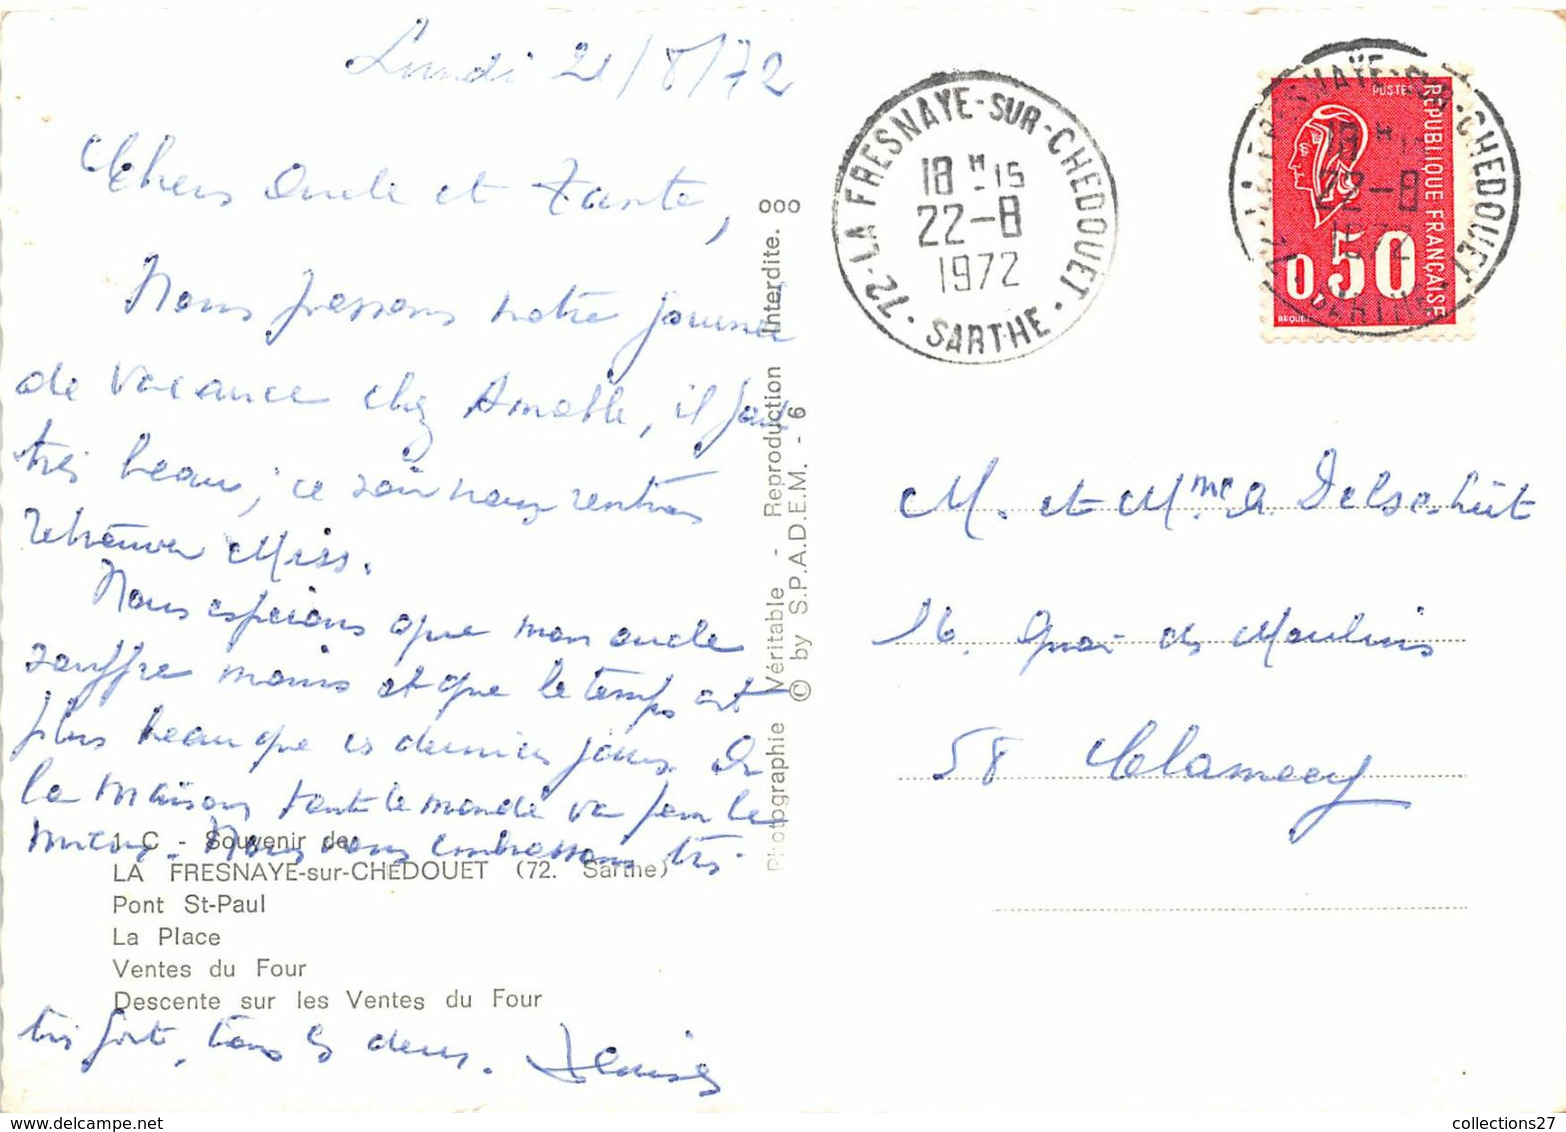 Lundi 21/8/72
Chers Oncle et Tante,
Nous passons notre journée
de vacance chez Amable, il fait
très beau, ce soir nous rentrons
retrouver Miss.
Nous espérons que mon oncle
souffre moins et que le temps est
plus beau que ces derniers jours. A
la maison tout le monde va pour le
mieux. Nous vous embrassons très
1 C - Souvenir de
LA FRESNAYE-sur-CHEDOUET (72. Sarthe)
Pont St-Paul
La Place
Ventes du Four
Descente sur les Ventes du Four
très fort, tous les deux.
Photographie Véritable - Reproduction Interdite. 000
© by S.P.A.D.E.M. - 6
72 - LA FRESNAYE-SUR-CHEDOUET · SARTHE ·
18 H -15
22-8
1972
POSTES
REPUBLIQUE FRANÇAISE
0,50
22-8
1972
M. et Mme A. Delschüt
16. Quai des Moulins
58 Clamecy
collections27